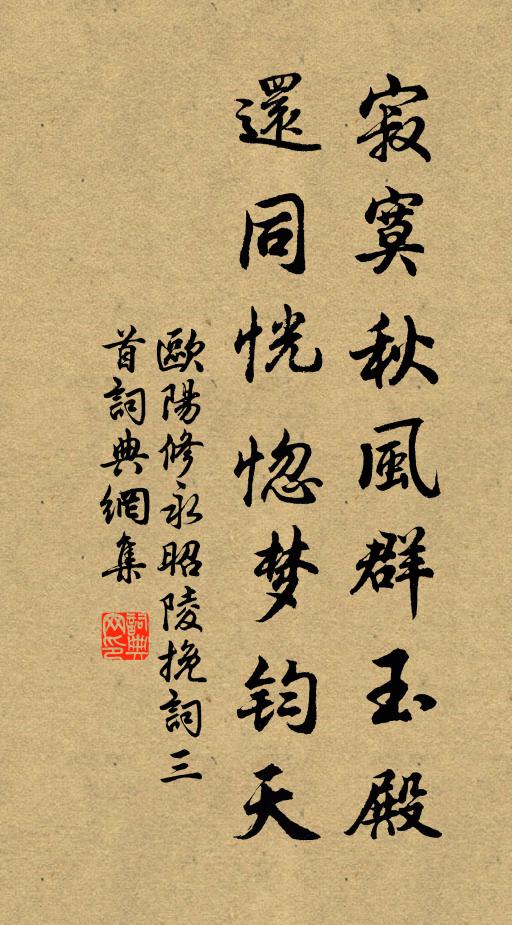 寂寞秋風群玉殿
還同恍惚梦钧天
歐陽修永昭陵挽詞三
首詞典網集
詞典网印